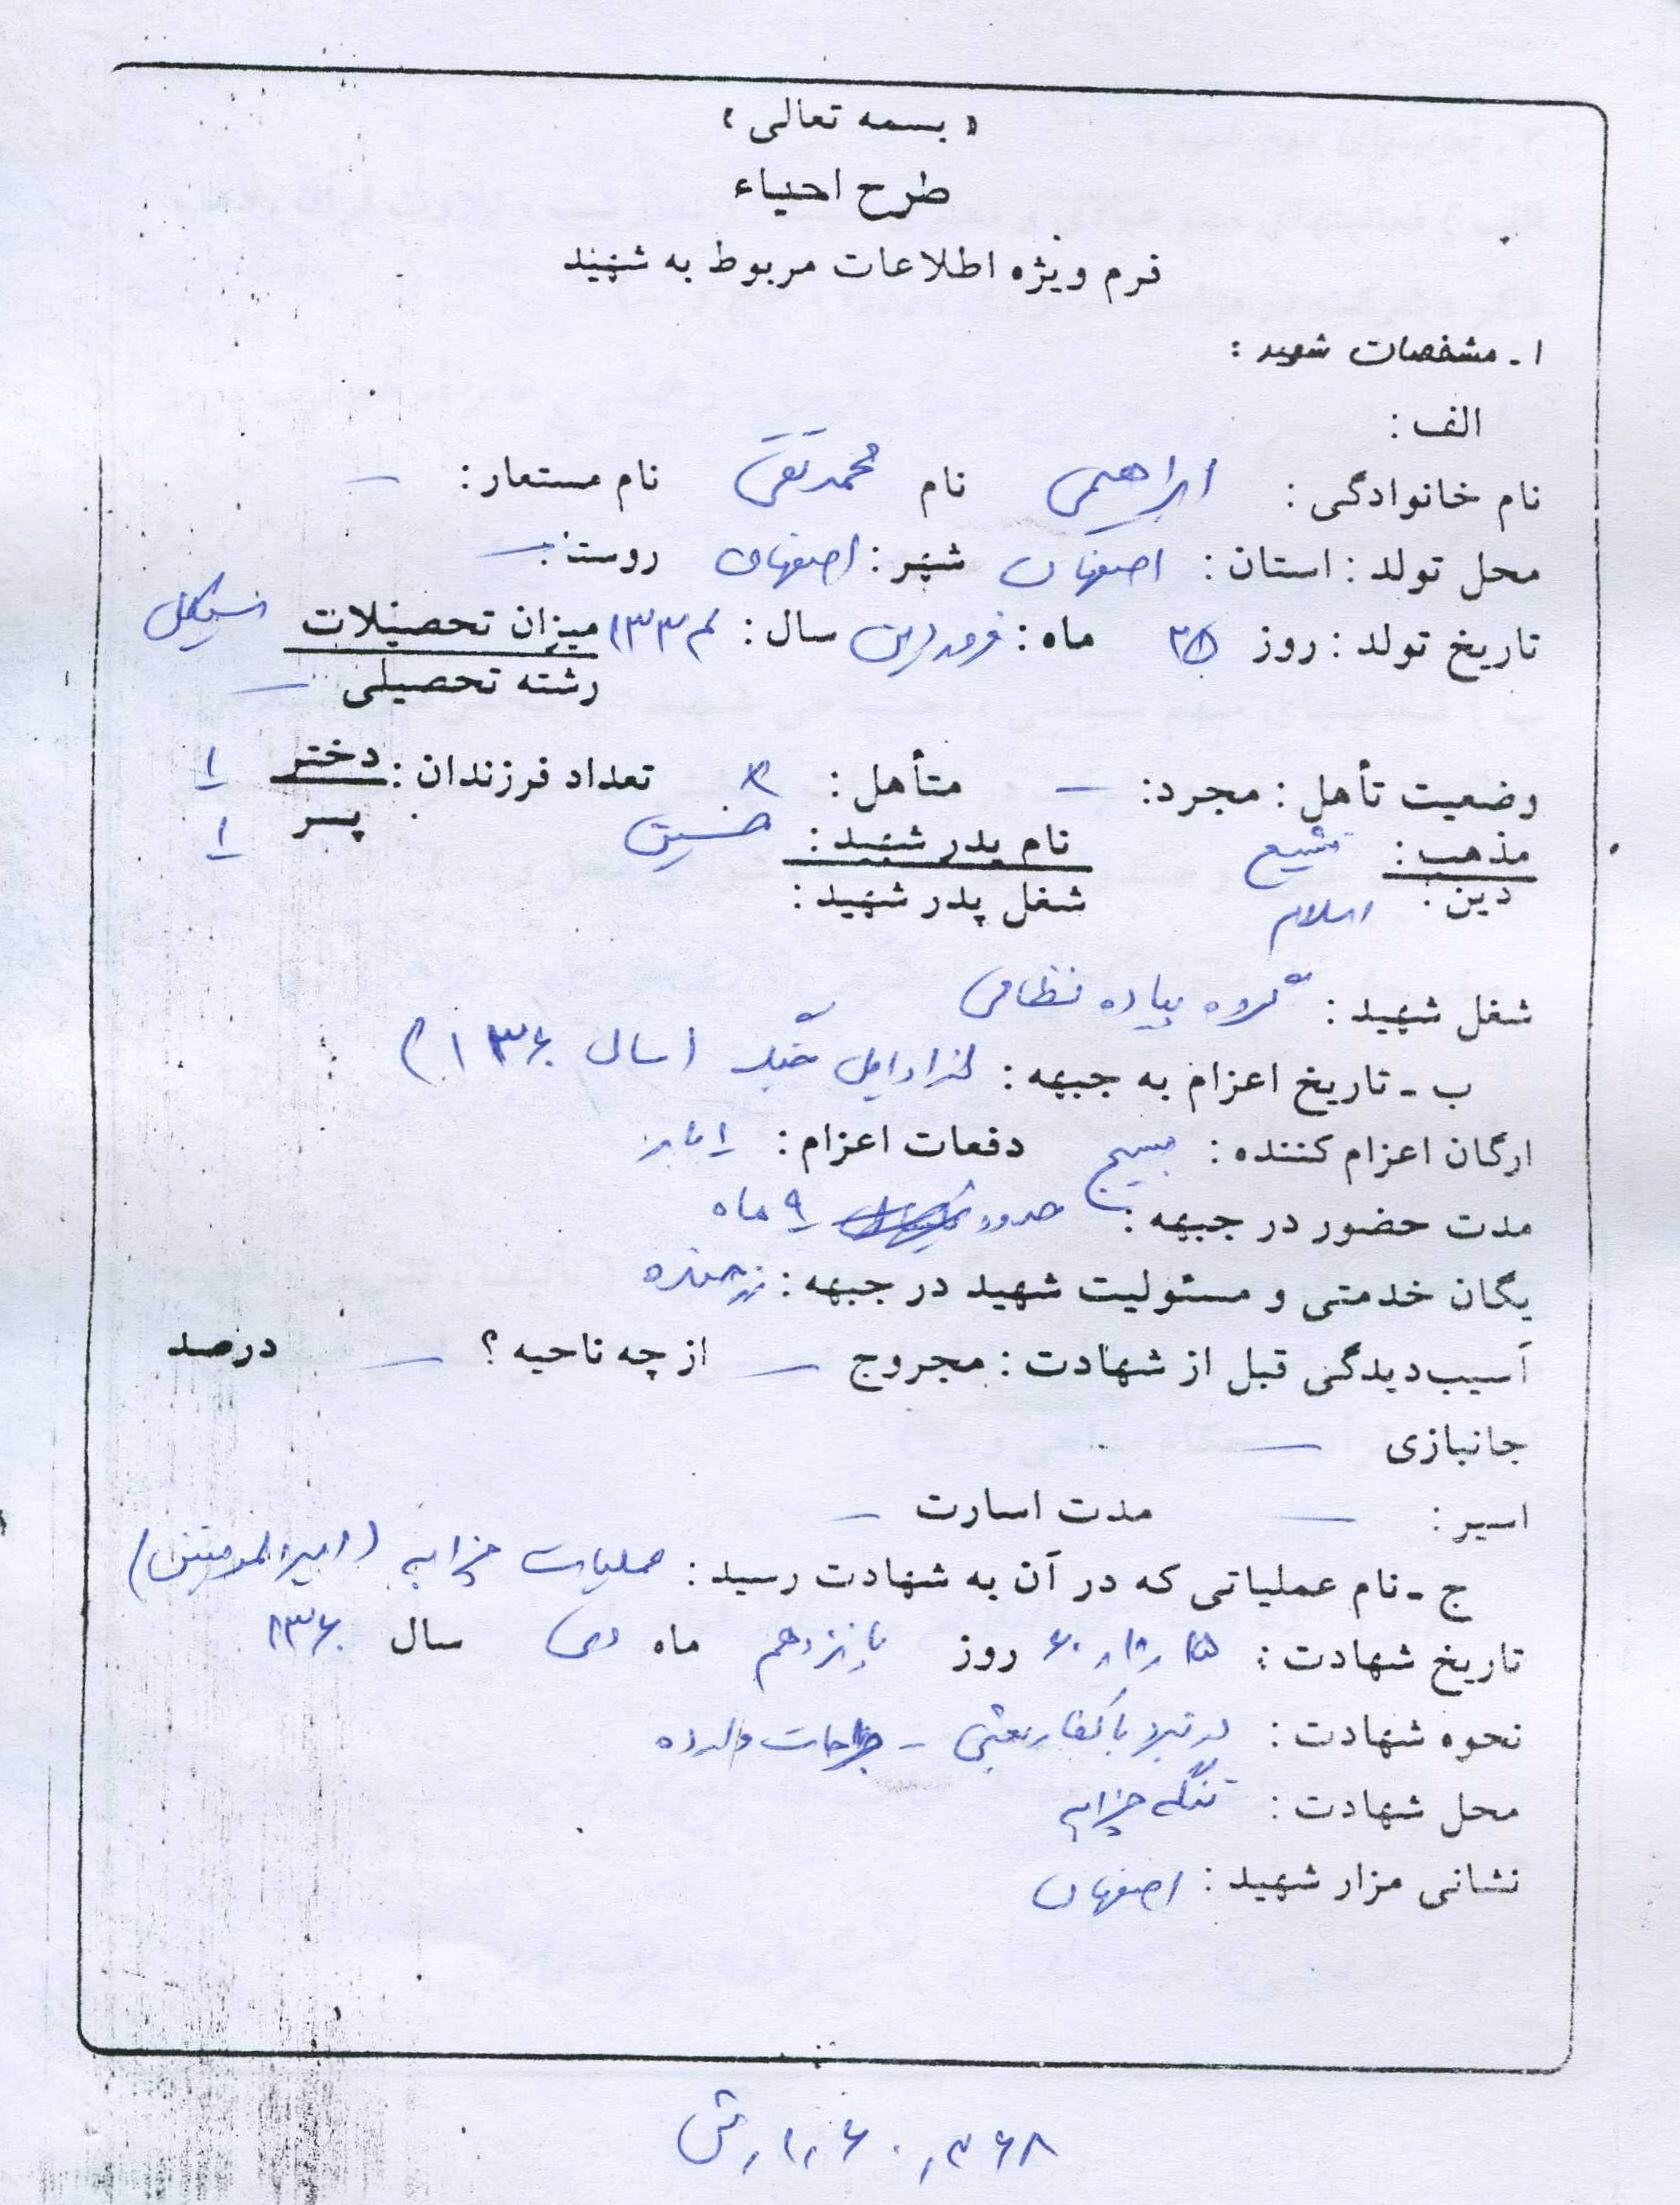 « بسمه تعالی »
طرح احیاء
فرم ویژه اطلاعات مربوط به شهید
۱ـ مشخصات شهید :
الف :
نام خانوادگی : ابراهیمی نام محمدتقی نام مستعار : —
محل تولد : استان : اصفهان شهر : اصفهان روستا : —
تاریخ تولد : روز ماه : فروردین سال : ۱۳۳۴ میزان تحصیلات سیکل
رشته تحصیلی —
وضعیت تأهل : مجرد: — متأهل : تعداد فرزندان : دختر ۱
پسر ۱
مذهب : تشیع نام پدر شهید : حسین
دین : اسلام شغل پدر شهید :
شغل شهید : گروه پیاده نظامی
ب ـ تاریخ اعزام به جبهه : از اوایل جنگ (سال ۱۳۶۰)
ارگان اعزام کننده : بسیج دفعات اعزام :
مدت حضور در جبهه : حدود ۹ ماه
یگان خدمتی و مسئولیت شهید در جبهه : رزمنده
آسیب‌دیدگی قبل از شهادت : مجروح — از چه ناحیه ؟ — درصد
جانبازی —
اسیر : — مدت اسارت —
ج ـ نام عملیاتی که در آن به شهادت رسید : عملیات چزابه (امیرالمومنین)
تاریخ شهادت : روز پانزدهم ماه دی سال ۱۳۶۰
نحوه شهادت : در نبرد با کفار بعثی – جراحات وارده
محل شهادت : تنگه چزابه
نشانی مزار شهید : اصفهان